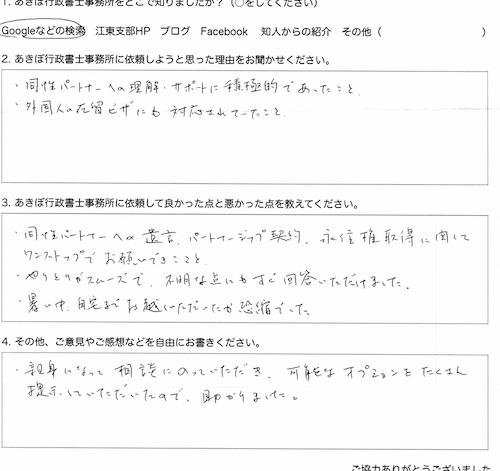 1. あきぼ行政書士事務所をどこで知りましたか？（○をしてください）
Googleなどの検索　江東支部HP　ブログ　Facebook　知人からの紹介　その他（　　　）
2. あきぼ行政書士事務所に依頼しようと思った理由をお聞かせください。
・同性パートナーへの理解・サポートに積極的であったこと
・外国人の在留ビザにも対応されていたこと
3. あきぼ行政書士事務所に依頼して良かった点と悪かった点を教えてください。
・同性パートナーへの遺言、パートナーシップ契約、永住権取得に関して
ワンストップでお願いできること。
・やりとりがスムーズで、不明な点にもすぐ回答いただけました。
・暑い中、自宅までお越しいただいたが恐縮でした
4. その他、ご意見やご感想などを自由にお書きください。
・親身になって相談にのっていただき、可能なオプションをたくさん
提示していただいたので、助かりました。
ご協力ありがとうございました